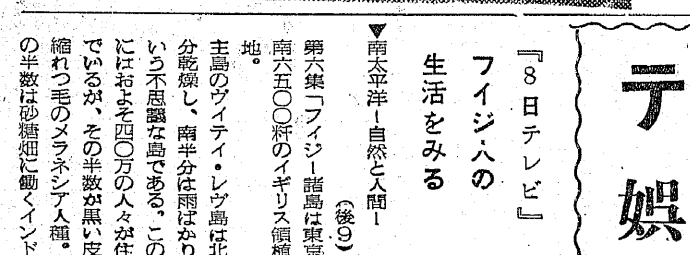 テ
娯
『8日テレビ』
フイジ人の
生活をみる
▼南太平洋ー自然と人間ー
(後9)
第六集「フィジー諸島は東京
南六五〇〇粁のイギリス領植
地。
主島のヴイテイ・レヴ島は北
分乾燥し、南半分は雨ばかり
いう不思議な島である。この
にはおよそ四〇万の人々が住
でいるが、その半数が黒い皮
縮れつ毛のメラネシア人種。
の半数は砂糖畑に働くインド